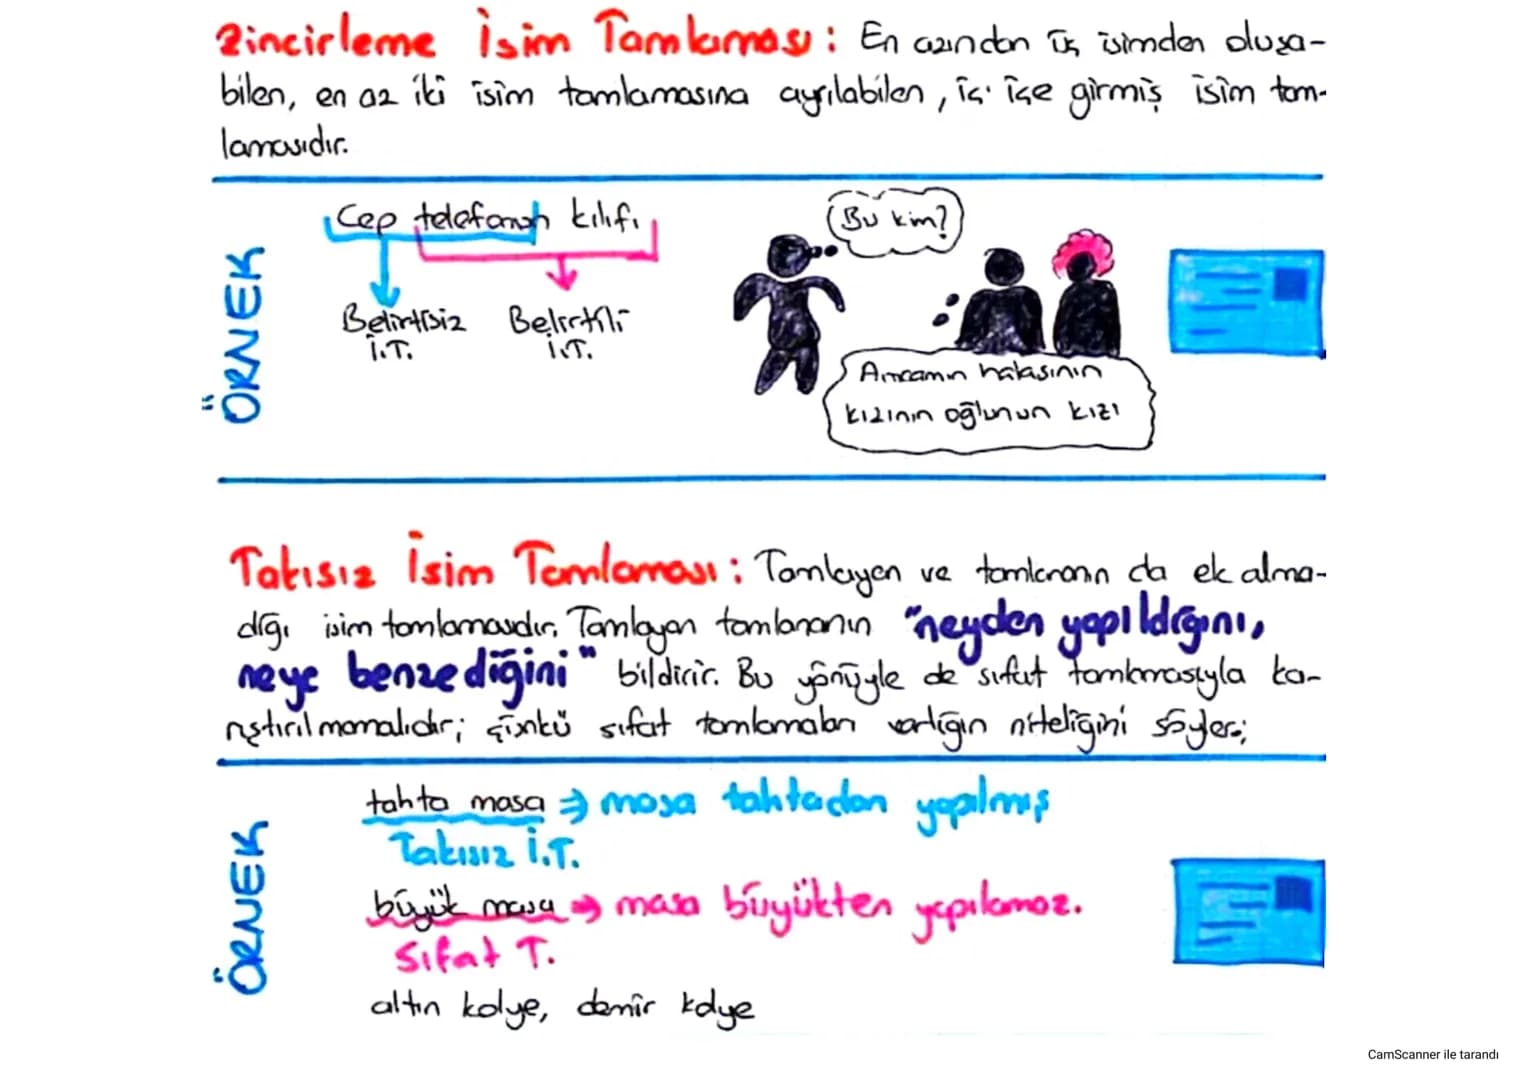 Zincirleme İsim Tamlaması: En azından üç isimden oluşa-
bilen, en az iki isim tamlamasına ayrılabilen, iç içe girmiş isim tam-
lamasıdır.
ÖRNEK
Cep telefonun kılıfı
Belirtisiz Belirtili
İ.T. İ.T.
Bu kim?
Amcamın halasının
kızının oğlunun kızı
Takısız İsim Tamlaması: Tamlayan ve tamlananın da ek alma-
dığı isim tamlamasıdır. Tamlayan tamlananın "neyden yapıldığını,
neye benzediğini" bildirir. Bu yönüyle de sıfat tamlamasıyla ka-
rıştırılmamalıdır; çünkü sıfat tamlamaları varlığın niteliğini söyler;
ÖRNEK
tahta masa ⇒ masa tahtadan yapılmış
Takısız İ.T.
büyük masa ⇒ masa büyükten yapılamaz.
Sıfat T.
altın kolye, demir kolye
CamScanner ile tarandı